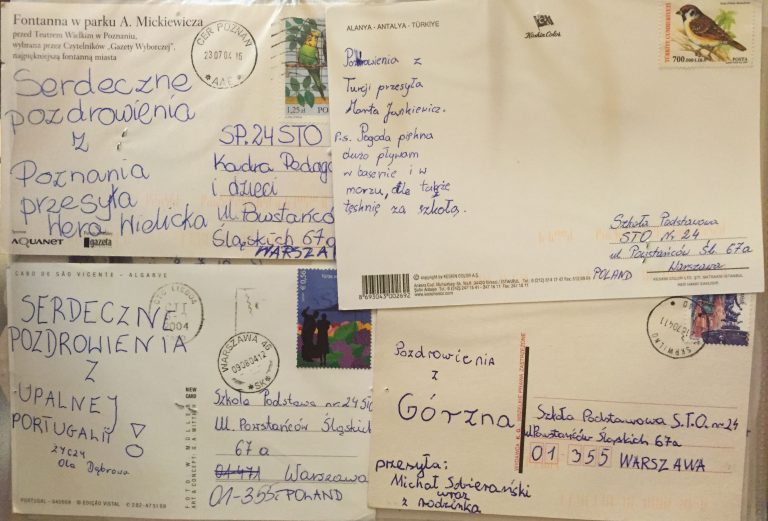 Fontanna w parku A. Mickiewicza
przed Teatrem Wielkim w Poznaniu,
wybrana przez Czytelników „Gazety Wyborczej",
najpiękniejszą fontanną miasta
Serdeczne
pozdrowienia
z
Poznania
przesyła
Wera Wielicka
AQUANET
gazeta
CER POZNAŃ
23 07 04
1,25 zł
SP. 24 STO
Kadra Pedago
i dzieci
ul. Powstańcó
Śląskich 67a
WARSZAW
ALANYA - ANTALYA - TÜRKİYE
Keskin Color
700.000
POSTA
TÜRKİYE CUMHURİYETİ
Pozdrowienia z
Turcji przesyła
Marta Jankiewicz.
P.s. Pogoda piękna
dużo pływam
w basenie i w
morzu, ale także
tęsknię za szkołą.
Szkoła Podstawowa
STO Nr 24
ul Powstańców Śl. 67a
Warszawa
POLAND
© copyright by KESKIN COLOR A.Ş.
8 693043 002692
CABO DE SÃO VICENTE - ALGARVE
SERDECZNE
POZDROWIENIA
Z
UPALNEJ
PORTUGALII!
ŻYCZY
Ola Dąbrowa
PORTUGAL
VIEW
CARD
WARSZAWA 40
090804 12
*SK*
Szkoła Podstawowa nr 24 STO
Ul. Powstańców Śląskich
67 a
01-471 Warszawa
01-355 POLAND
Pozdrowienia
z
Górzna
przesyła:
Michał Sobierański
wraz
z rodzinką
Szkoła Podstawowa S.T.O. nr 24
ul Powstańców Śląskich
67a
01-355 WARSZAWA